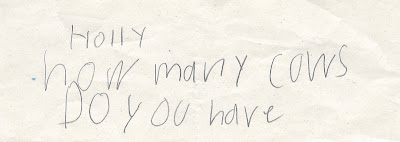 Holly
how many cows
Do you have